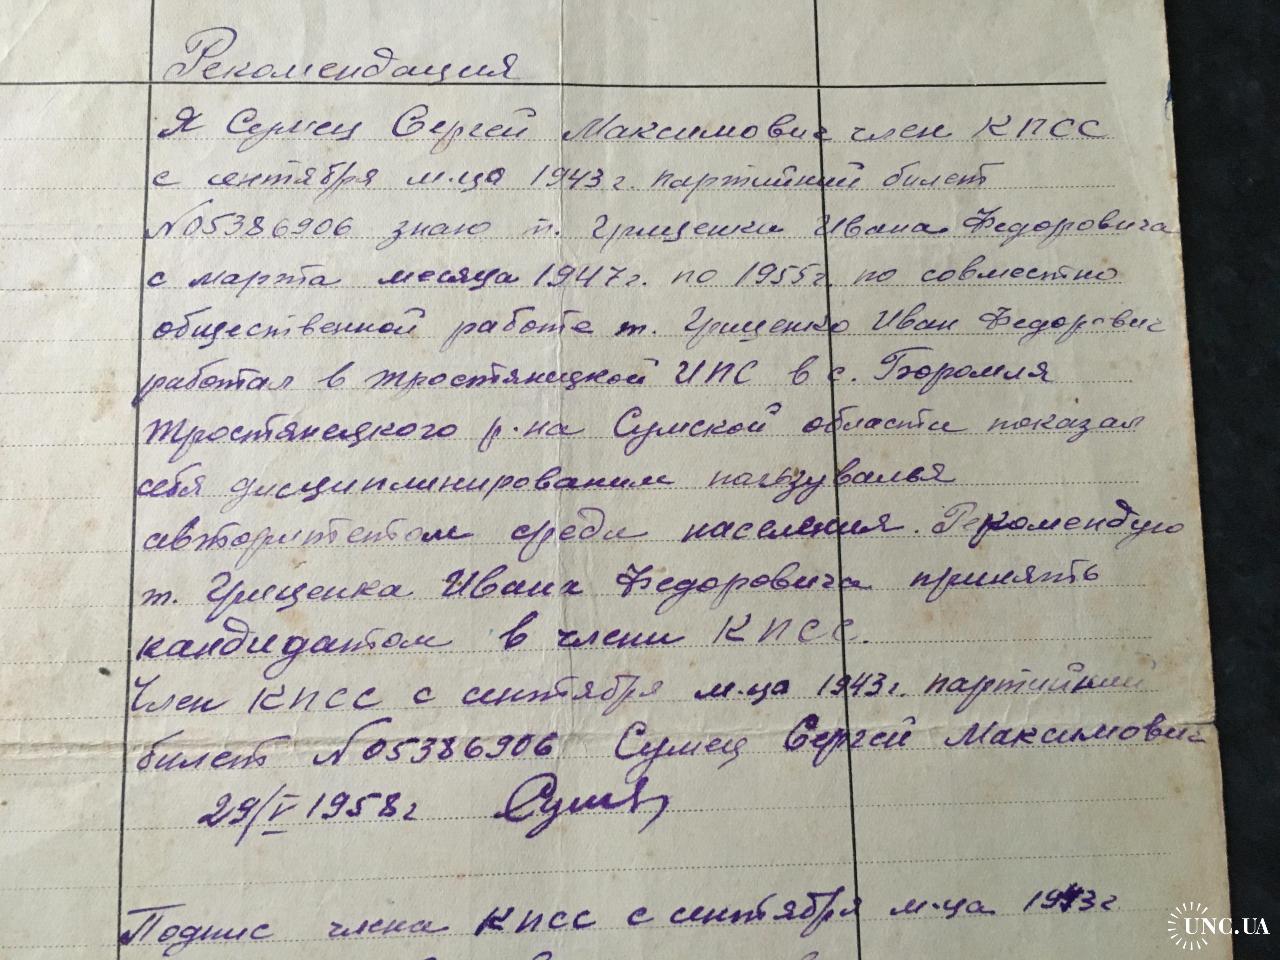 Рекомендация
Я Сумец Сергей Максимович член КПСС
с сентября м-ца 1943 г. партийний билет
№05386906 знаю т. Грищенки Ивана Федоровича
с марта месяца 1947 г. по 1955 г. по совместно
общественной работе т. Грищенко Иван Федорович
работал в Тростянецкой ИПС в с. Боромля
Тростянецкого р-на Сумской области показал
себя дисциплинированим пользувалья
авторитетом среди населения. Рекомендую
т. Грищенка Ивана Федоровича принять
кандидатом в члени КПСС.
Член КПСС с сентября м-ца 1943 г. партийний
билет №05386906 Сумец Сергей Максимович
29/V 1958 г Сумец
Подпис члена КПСС с сентября м-ца 1943 г
UNC.UA